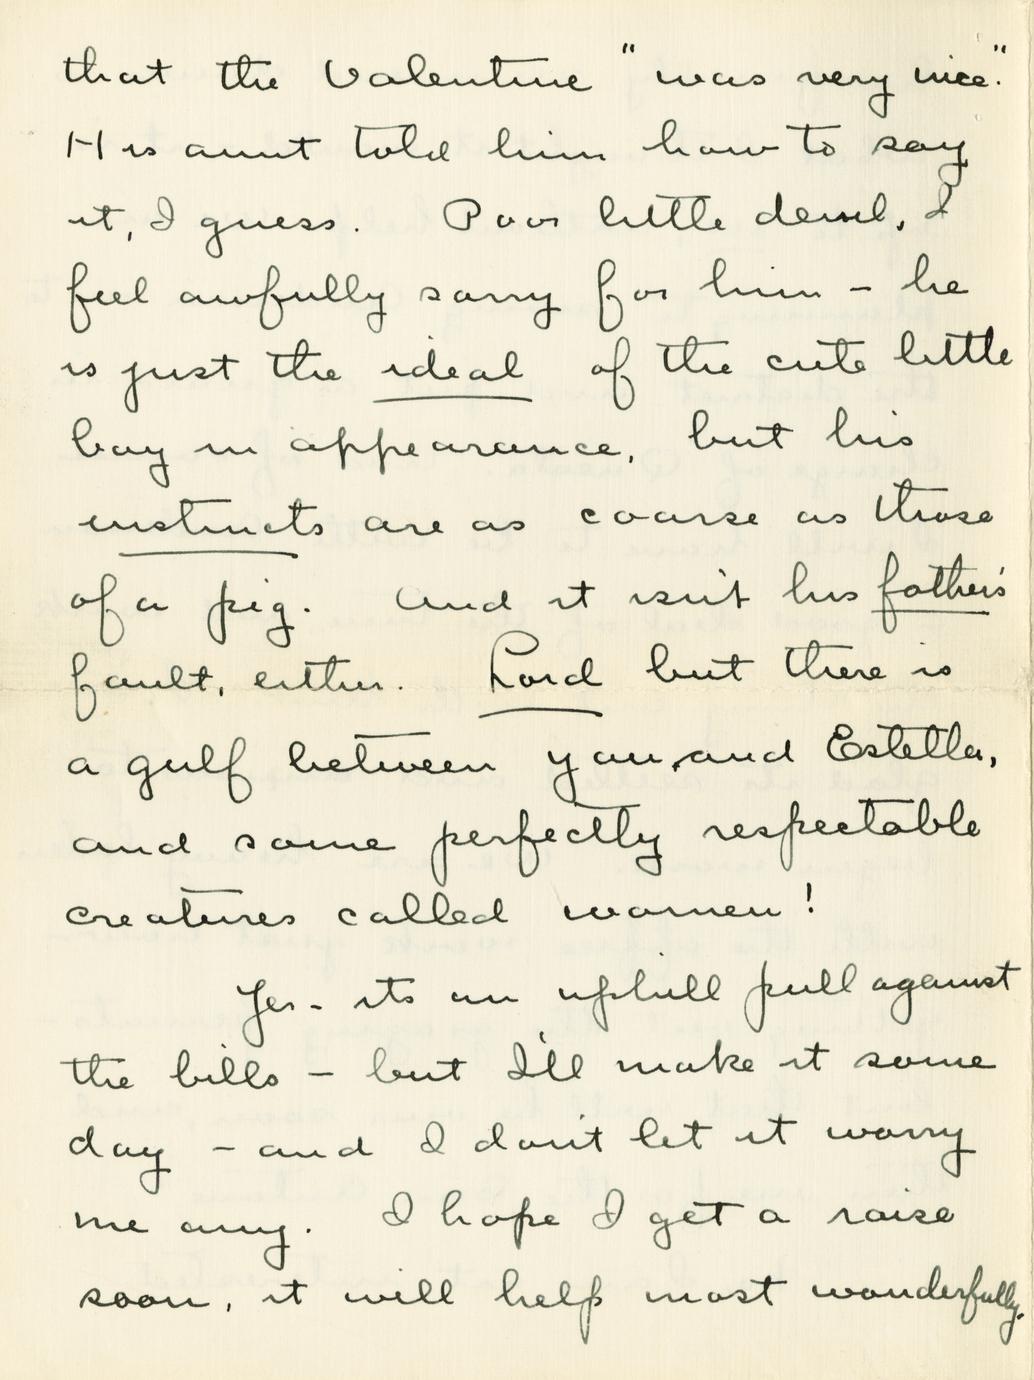 that the Valentine "was very nice."
His aunt told him how to say
it, I guess. Poor little devil, I
feel awfully sorry for him - he
is just the ideal of the cute little
boy in appearance, but his
instincts are as coarse as those
of a pig. And it isn't his father's
fault, either. Lord but there is
a gulf between you, and Estella,
and some perfectly respectable
creatures called women!
Yes - its an uphill pull against
the bills - but I'll make it some
day - and I don't let it worry
me any. I hope I get a raise
soon, it will help most wonderfully.